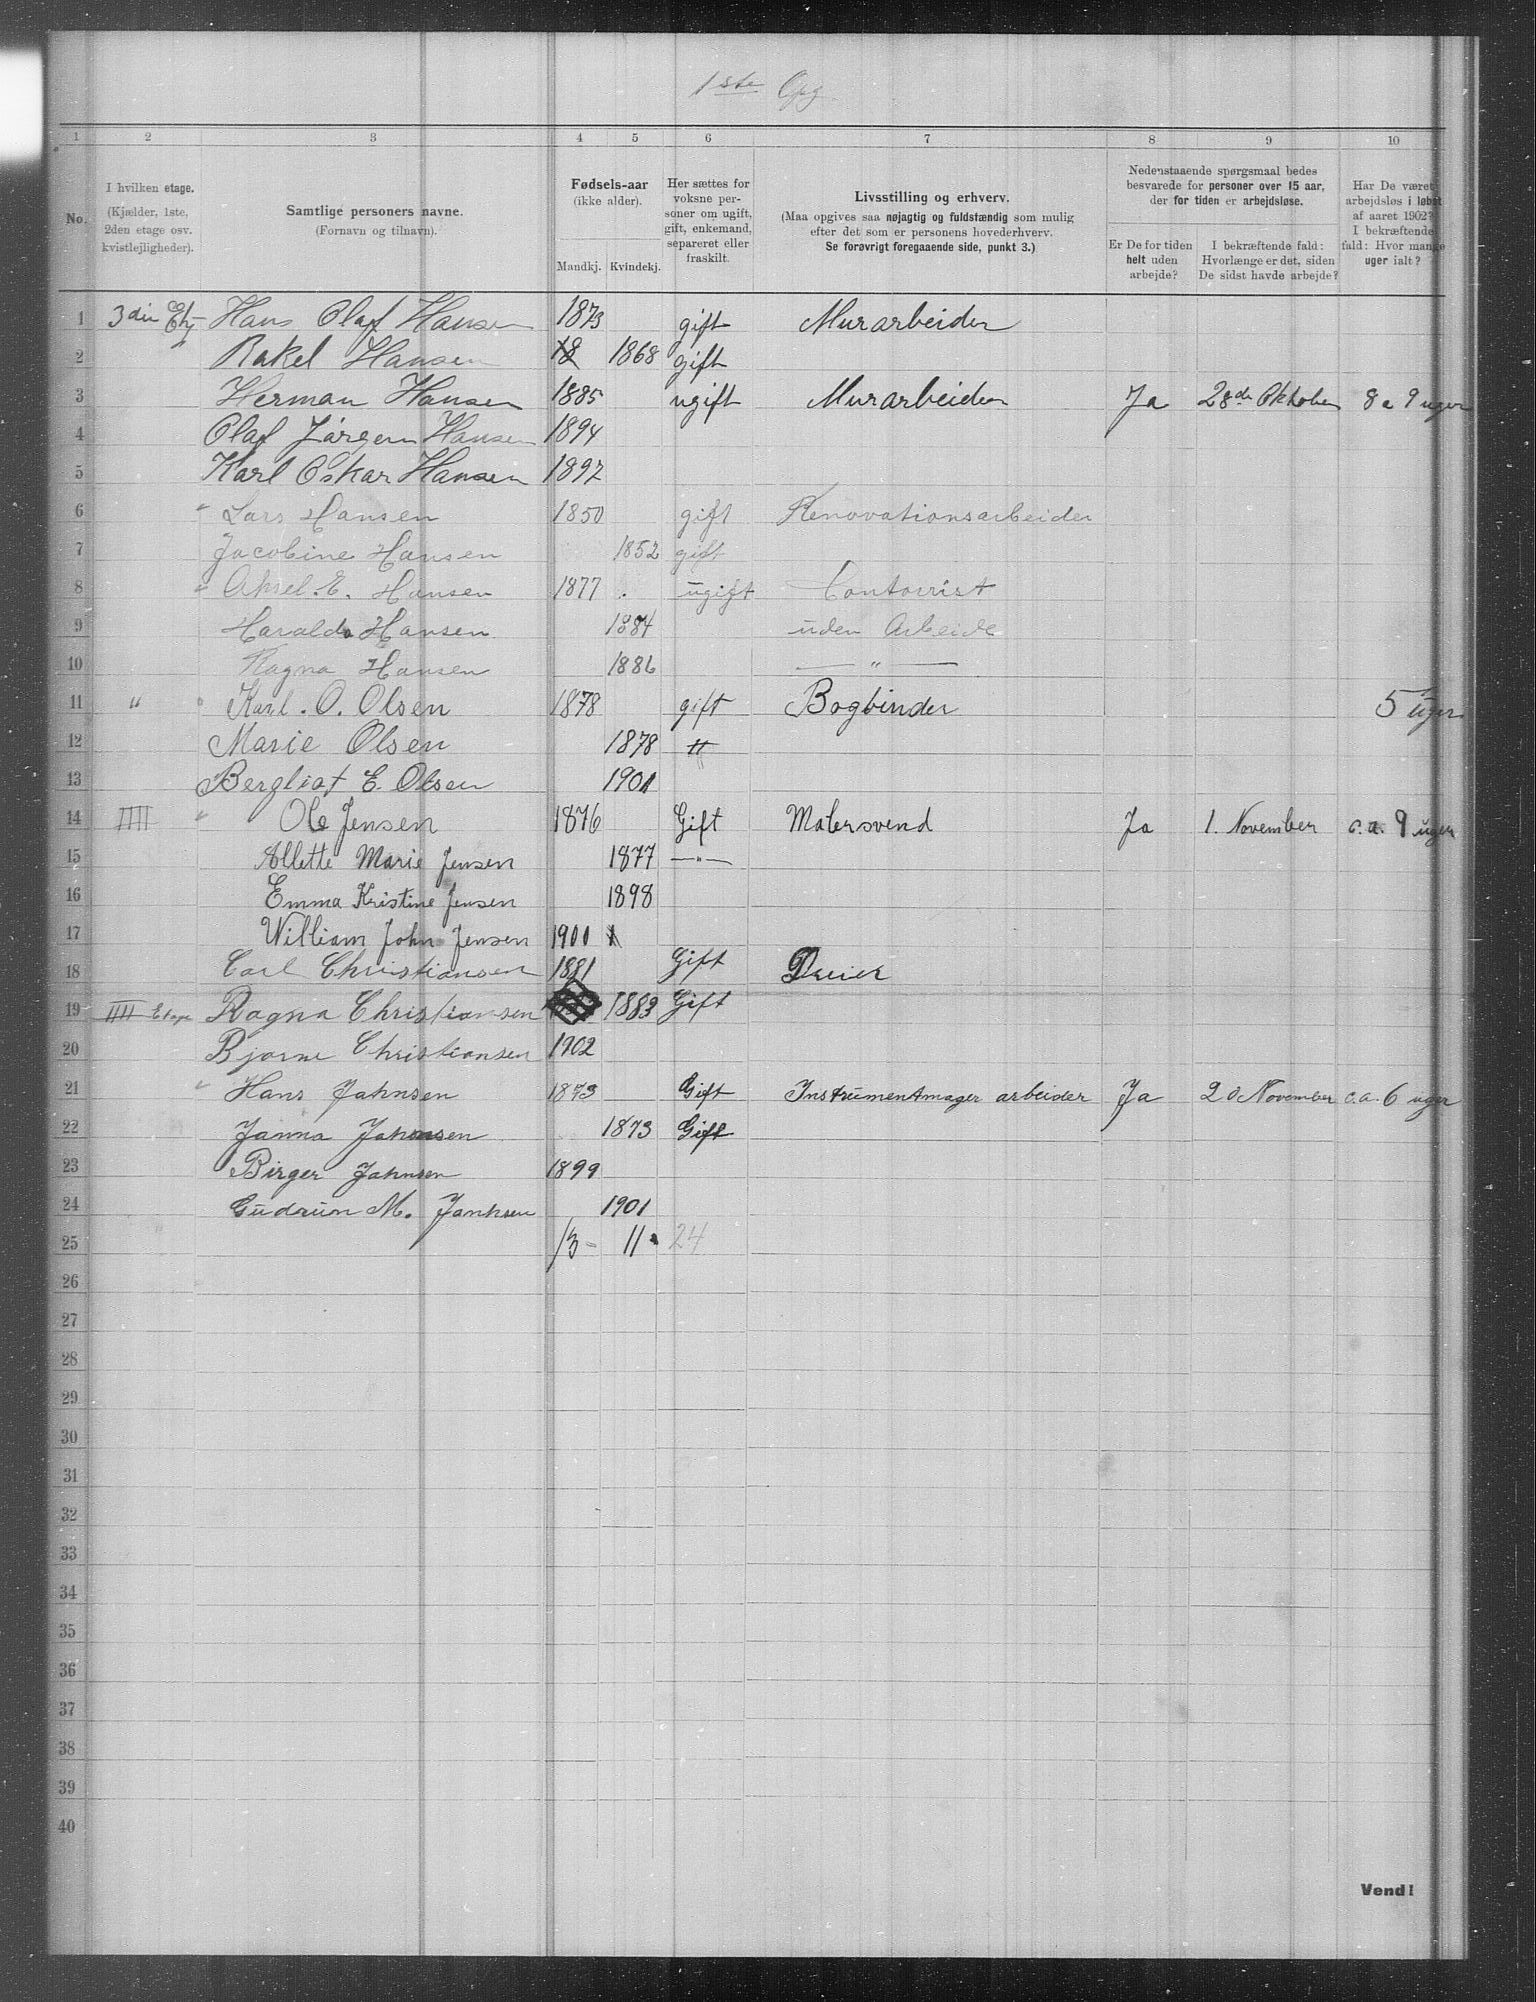 1ste Opg
1 2 3 4 5 6 7 8 9 10
No.
I hvilken etage.
(Kjælder, 1ste,
2den etage osv.
kvistlejligheder).
Samtlige personers navne.
(Fornavn og tilnavn).
Fødsels-aar
(ikke alder).
Mandkj. Kvindekj.
Her sættes for
voksne per-
soner om ugift,
gift, enkemand,
separeret eller
fraskilt.
Livsstilling og erhverv.
(Maa opgives saa nøjagtig og fuldstændig som mulig
efter det som er personens hovederhverv.
Se forøvrigt foregaaende side, punkt 3.)
Nedenstaaende spørgsmaal bedes
besvarede for personer over 15 aar,
der for tiden er arbejdsløse.
Er De for tiden
helt uden
arbejde?
I bekræftende fald:
Hvorlænge er det, siden
De sidst havde arbejde?
Har De været
arbejdsløs i løbet
af aaret 1902?
I bekræftende
fald: Hvor mange
uger ialt?
1 3die Etg Hans Olaf Hansen 1873 gift Murarbeider
2 " Rakel Hansen 18 1868 gift
3 Herman Hansen 1885 ugift Murarbeider Ja 28de Oktober 8 a 9 uger
4 Olaf Jørgen Hansen 1894
5 Karl Oskar Hansen 1897
6 " Lars Hansen 1850 gift Renovationsarbeider
7 Jacobine Hansen 1852 gift
8 " Aksel. E. Hansen 1877 . ugift Contorist
9 Haralda Hansen 1884 uden Arbeide
10 Ragna Hansen 1886 — " —
11 " " Karl. O. Olsen 1878 gift Bogbinder 5 uger
12 Marie Olsen 1878 "
13 Bergliot E. Olsen 1901
14 IIII " Ole Jensen 1876 Gift Malersvend Ja 1. November c.a. 9 uger
15 Allette Marie Jensen 1877 — " —
16 Emma Kristine Jensen 1898
17 William John Jensen 1901 1
18 Carl Christiansen 1881 Gift Dreier
19 IIII Etage Ragna Christiansen 1883 Gift
20 Bjarne Christiansen 1902
21 " Hans Jahnsen 1873 Gift Instrumentmager arbeider Ja 20 November c.a. 6 uger
22 Janna Jahnsen 1873 Gift
23 Birger Jahnsen 1899
24 Gudrun M. Janhsen 1901
25 13 - 11 . 24
26
27
28
29
30
31
32
33
34
35
36
37
38
39
40
Vend!